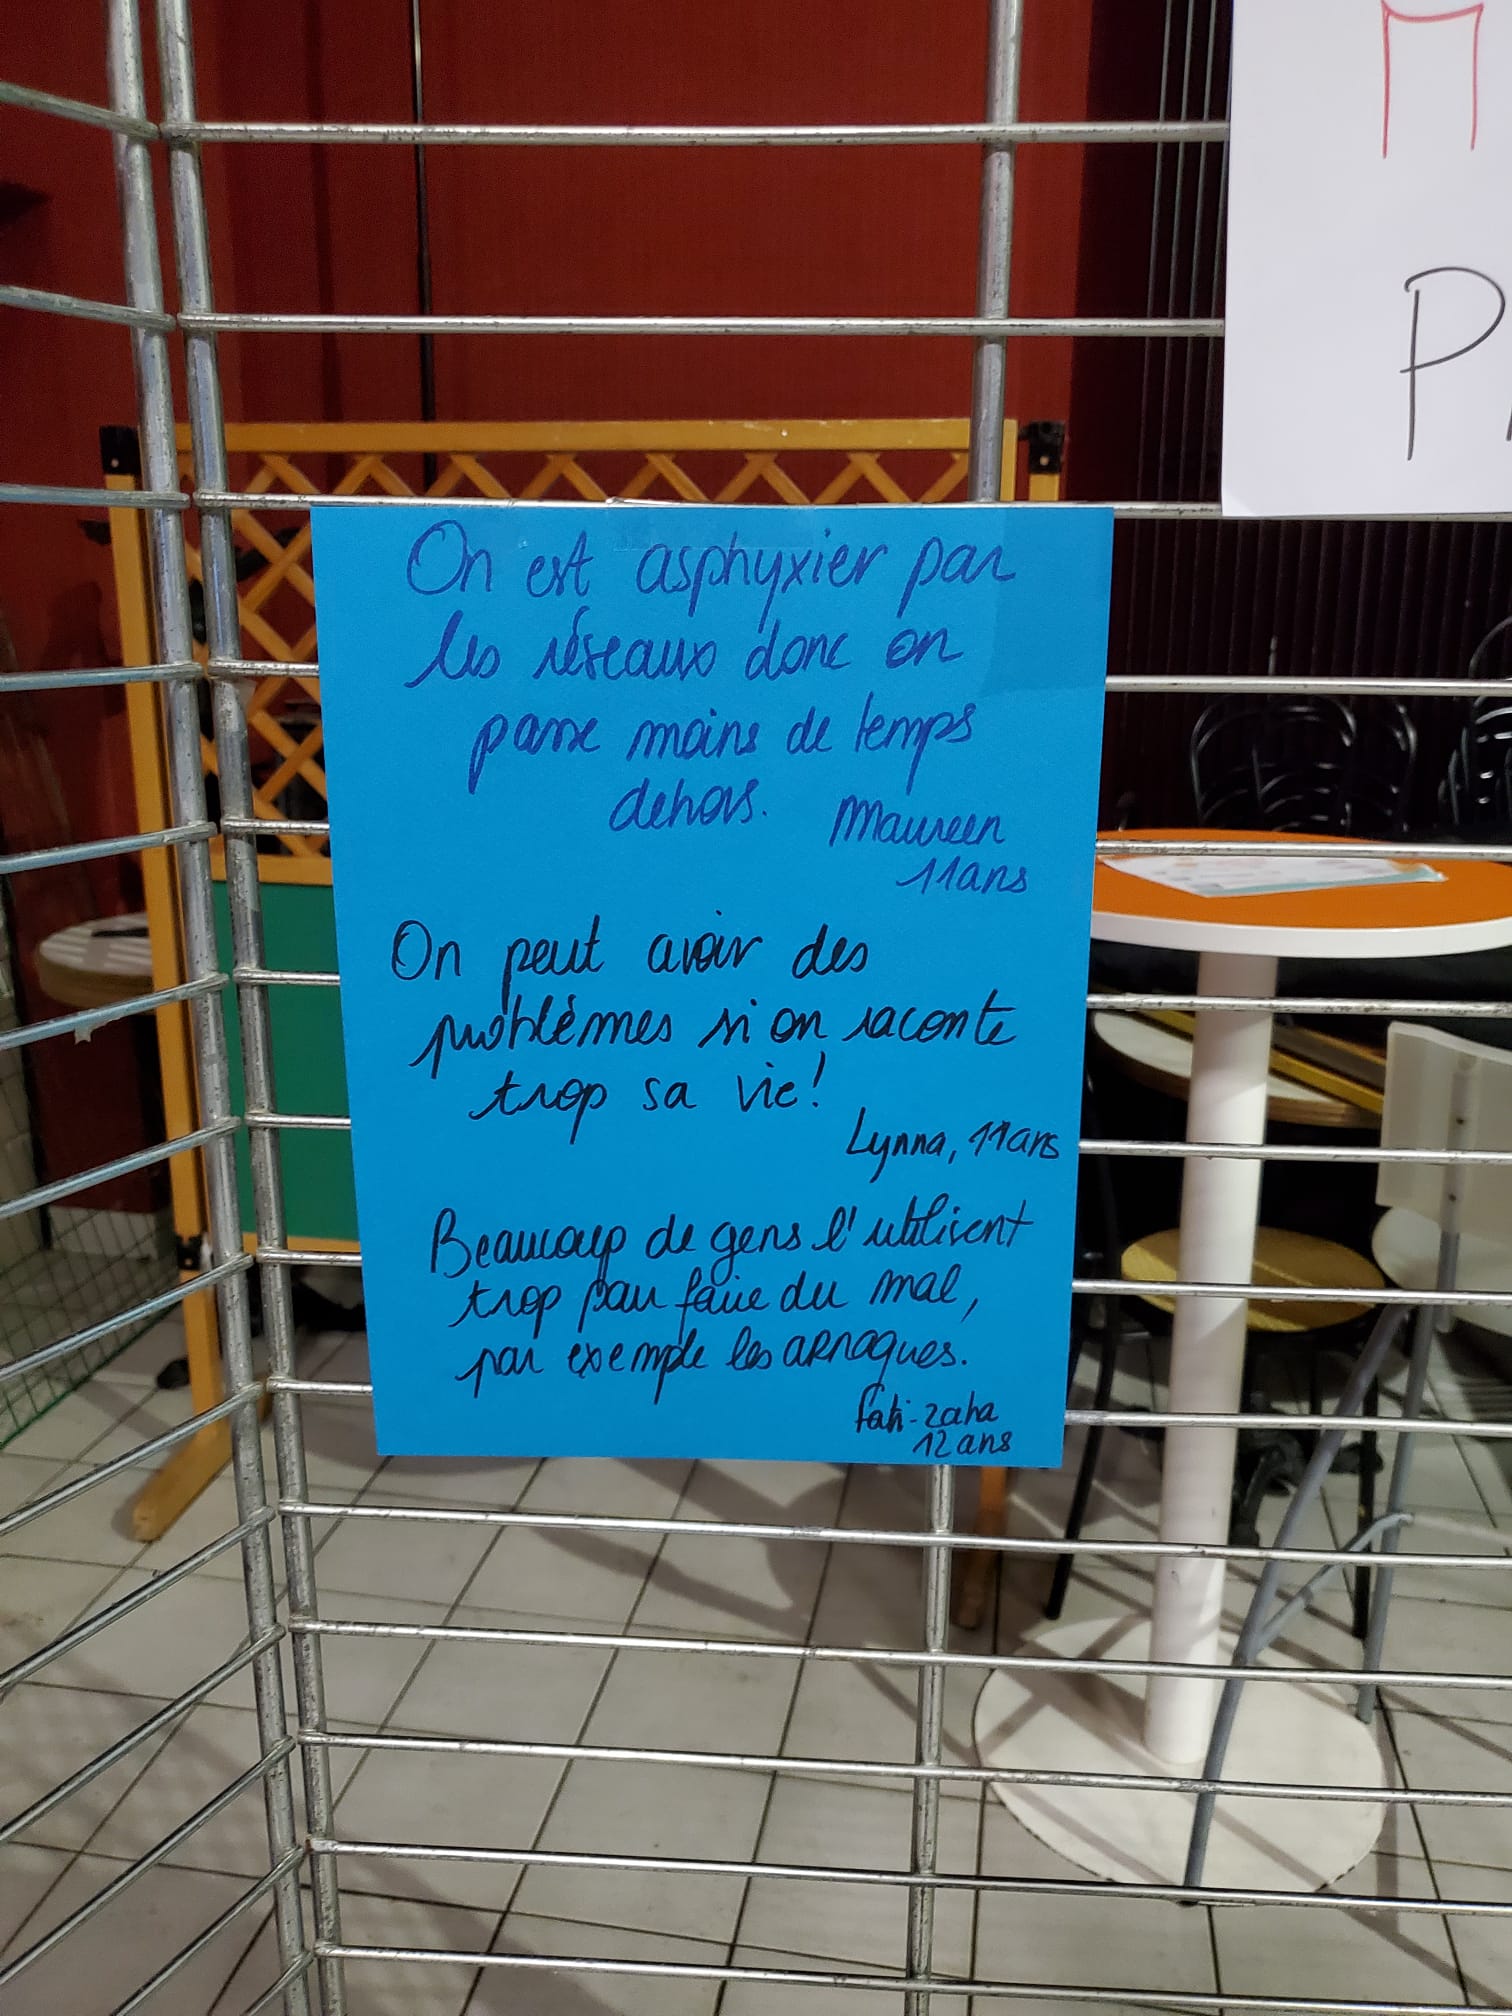 On est asphyxier par
les réseaux donc on
passe moins de temps
dehors.
Maureen
11ans
On peut avoir des
problèmes si on raconte
trop sa vie!
Lynna, 11ans
Beaucoup de gens l'utilisent
trop pour faire du mal,
par exemple les arnaques.
fati-zaha
12 ans
P